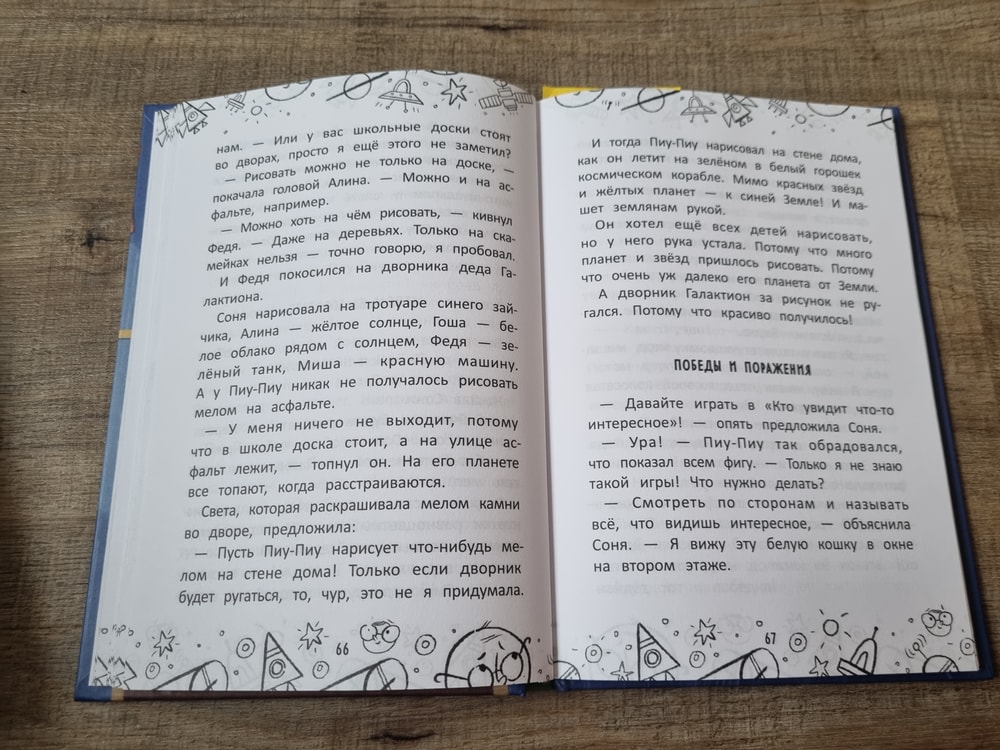 нам. — Или у вас школьные доски стоят
во дворах, просто я ещё этого не заметил?
— Рисовать можно не только на доске, —
покачала головой Алина. — Можно и на ас-
фальте, например.
— Можно хоть на чём рисовать, — кивнул
Федя. — Даже на деревьях. Только на ска-
мейках нельзя — точно говорю, я пробовал.
И Федя покосился на дворника деда Га-
лактиона.
Соня нарисовала на тротуаре синего зай-
чика, Алина — жёлтое солнце, Гоша — бе-
лое облако рядом с солнцем, Федя — зе-
лёный танк, Миша — красную машину.
А у Пиу-Пиу никак не получалось рисовать
мелом на асфальте.
— У меня ничего не выходит, потому
что в школе доска стоит, а на улице ас-
фальт лежит, — топнул он. На его планете
все топают, когда расстраиваются.
Света, которая раскрашивала мелом камни
во дворе, предложила:
— Пусть Пиу-Пиу нарисует что-нибудь ме-
лом на стене дома! Только если дворник
будет ругаться, то, чур, это не я придумала.
66
И тогда Пиу-Пиу нарисовал на стене дома,
как он летит на зелёном в белый горошек
космическом корабле. Мимо красных звёзд
и жёлтых планет — к синей Земле! И ма-
шет землянам рукой.
Он хотел ещё всех детей нарисовать,
но у него рука устала. Потому что много
планет и звёзд пришлось рисовать. Потому
что очень уж далеко его планета от Земли.
А дворник Галактион за рисунок не ру-
гался. Потому что красиво получилось!
ПОБЕДЫ И ПОРАЖЕНИЯ
— Давайте играть в «Кто увидит что-то
интересное»! — опять предложила Соня.
— Ура! — Пиу-Пиу так обрадовался,
что показал всем фигу. — Только я не знаю
такой игры! Что нужно делать?
— Смотреть по сторонам и называть
всё, что видишь интересное, — объяснила
Соня. — Я вижу эту белую кошку в окне
на втором этаже.
67